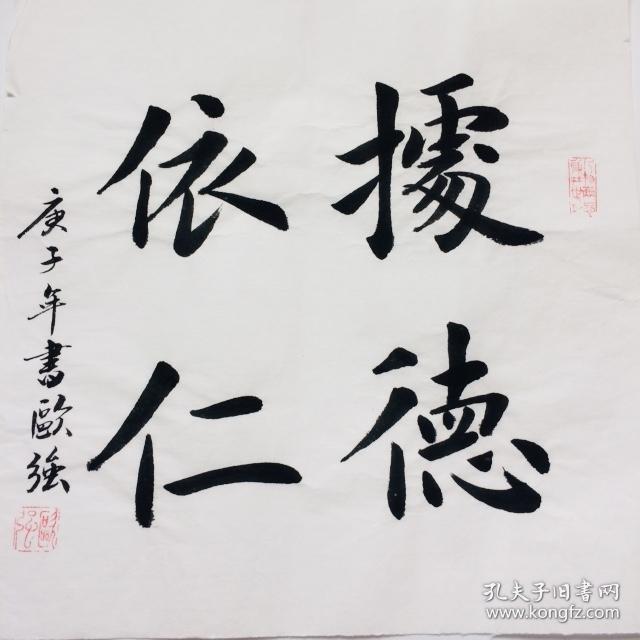 據德
依仁
庚子年書歐強
孔夫子旧書网
www.kongfz.com